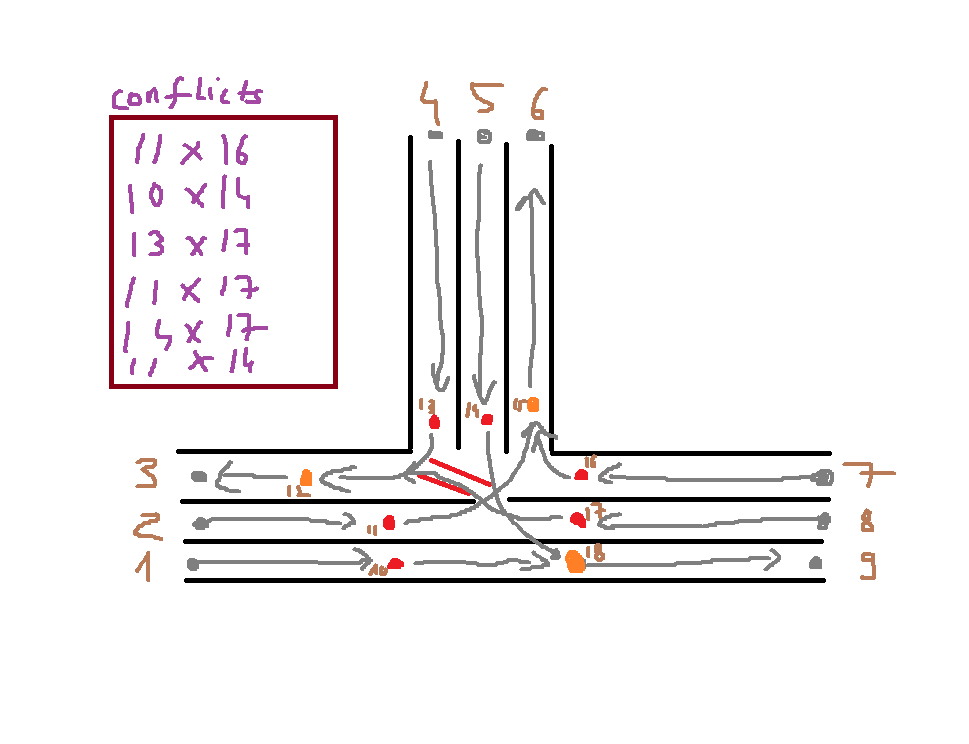 conflicts
11 x 16
10 x 14
13 x 17
11 x 17
14 x 17
11 x 14
4 5 6
13 14 15
3 12 16 7
2 11 17 8
1 10 18 9